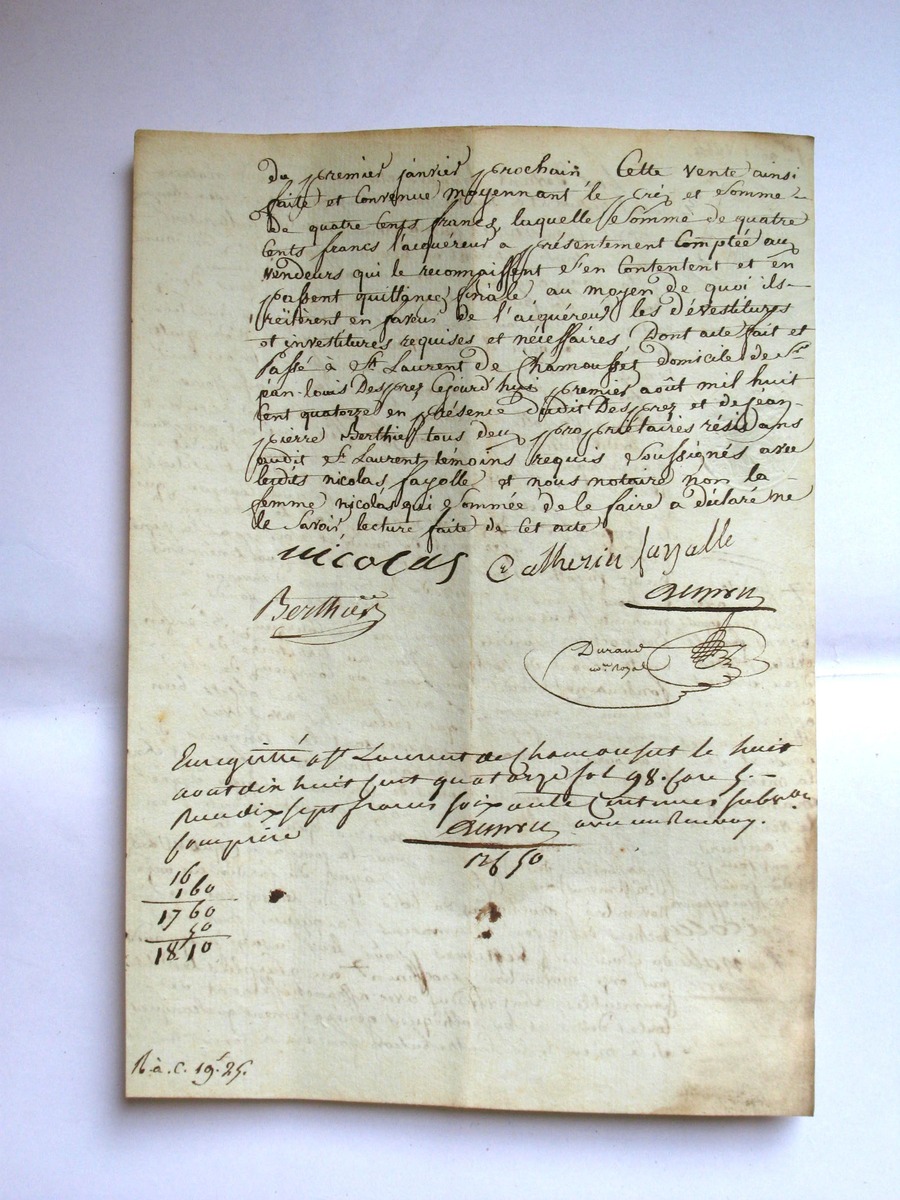 du premier janvier prochain Cette vente ainsi
faite et convenue moyennant le prix et somme
de quatre Cents francs, laquelle somme de quatre
Cents francs l'acquéreur a présentement Comptée au
vendeurs qui le reconnaissent s'en Contentent et en
passent quittance finale au moyen de quoi ils
réitèrent en faveur de l'acquéreur les dévestitures
et investitures requises et nécessaires, Dont acte fait et
Passé à St. Laurent de Chamousset domicile de Sr.
jean-louis Desprez Cejourd'hui premier août mil huit
Cent quatorze en présence dudit Desprez et de jean
pierre Berthier tous deux propriétaires résidans
audit St. Laurent témoins requis soussignés avec
lesdits nicolas fayolle et nous notaire non la
femme nicolas qui sommée de le faire a déclaré ne
le Savoir lecture faite de Cet acte
nicolas Catherin fayolle
Berthier
Durand
nre. Royal
Enregistré à St Laurent de Chamousset le huit
aout dix huit Cent quatorze fol 98. Case 5.
Reçu dix sept francs soixante Centimes subv.on
Comprise avec un Renvoy.
126 50
16
1 60
17 60
50
18 10
R. à. C. 19f. 25.